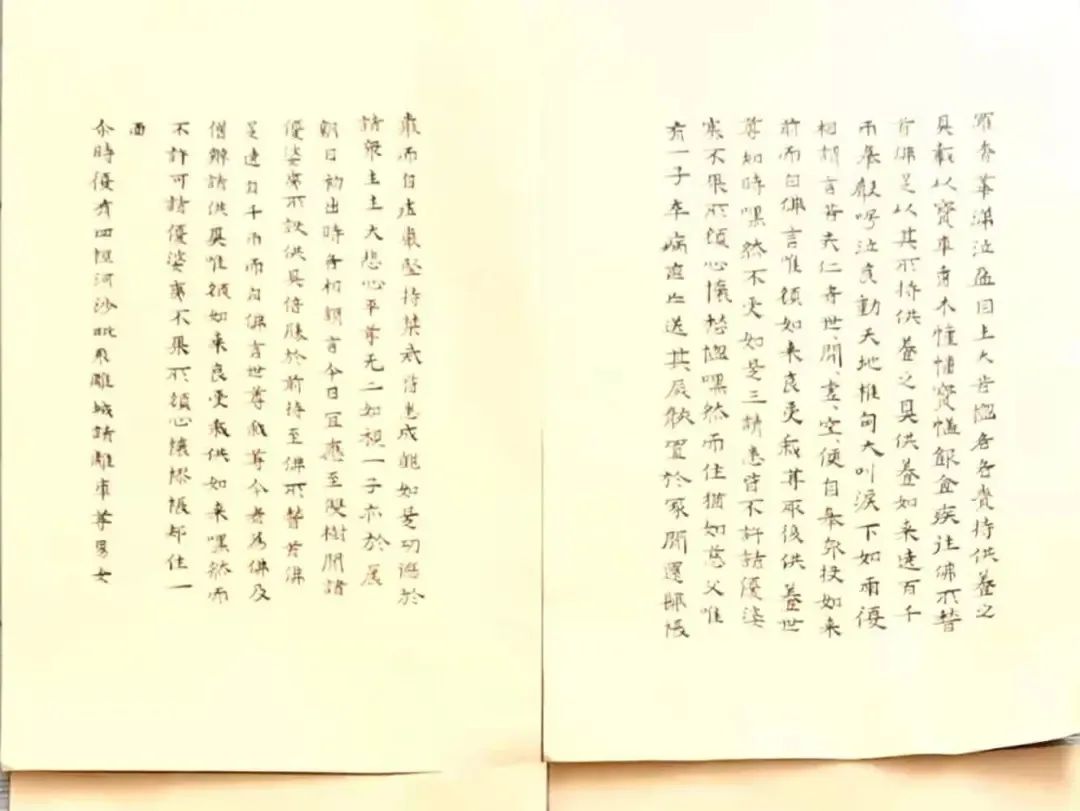 眾香華涕泣盈目生大苦惱各各賫持供養之
具載以寶車香木幢幡寶蓋飲食疾往佛所稽
首佛足以其所持供養之具供養如来遶百千
帀舉聲号泣哀動天地椎匈大叫淚下如雨復
相謂言苦夫仁者世間虛空便自舉身投如来
前而白佛言唯願如来哀受我等最後供養世
尊知時嘿然不受如是三請悉皆不許諸優婆
塞不果所願心懷愁惱嘿然而住猶如慈父唯
有一子卒病喪亡送其屍骸置於冢間還歸悵
嚴而自莊嚴堅持禁戒皆悉成就如是功德於
諸眾生生大悲心平等无二如視一子亦於晨
朝日初出時各相謂言今日宜應至雙樹間諸
優婆夷所設供具倍勝於前持至佛所稽首佛
足遶百千帀而白佛言世尊我等今者為佛及
僧辦諸供具唯願如来哀受我供如来嘿然而
不許可諸優婆夷不果所願心懷惆悵却住一
面
尒時復有四恒河沙毗耶離城諸離車等男女